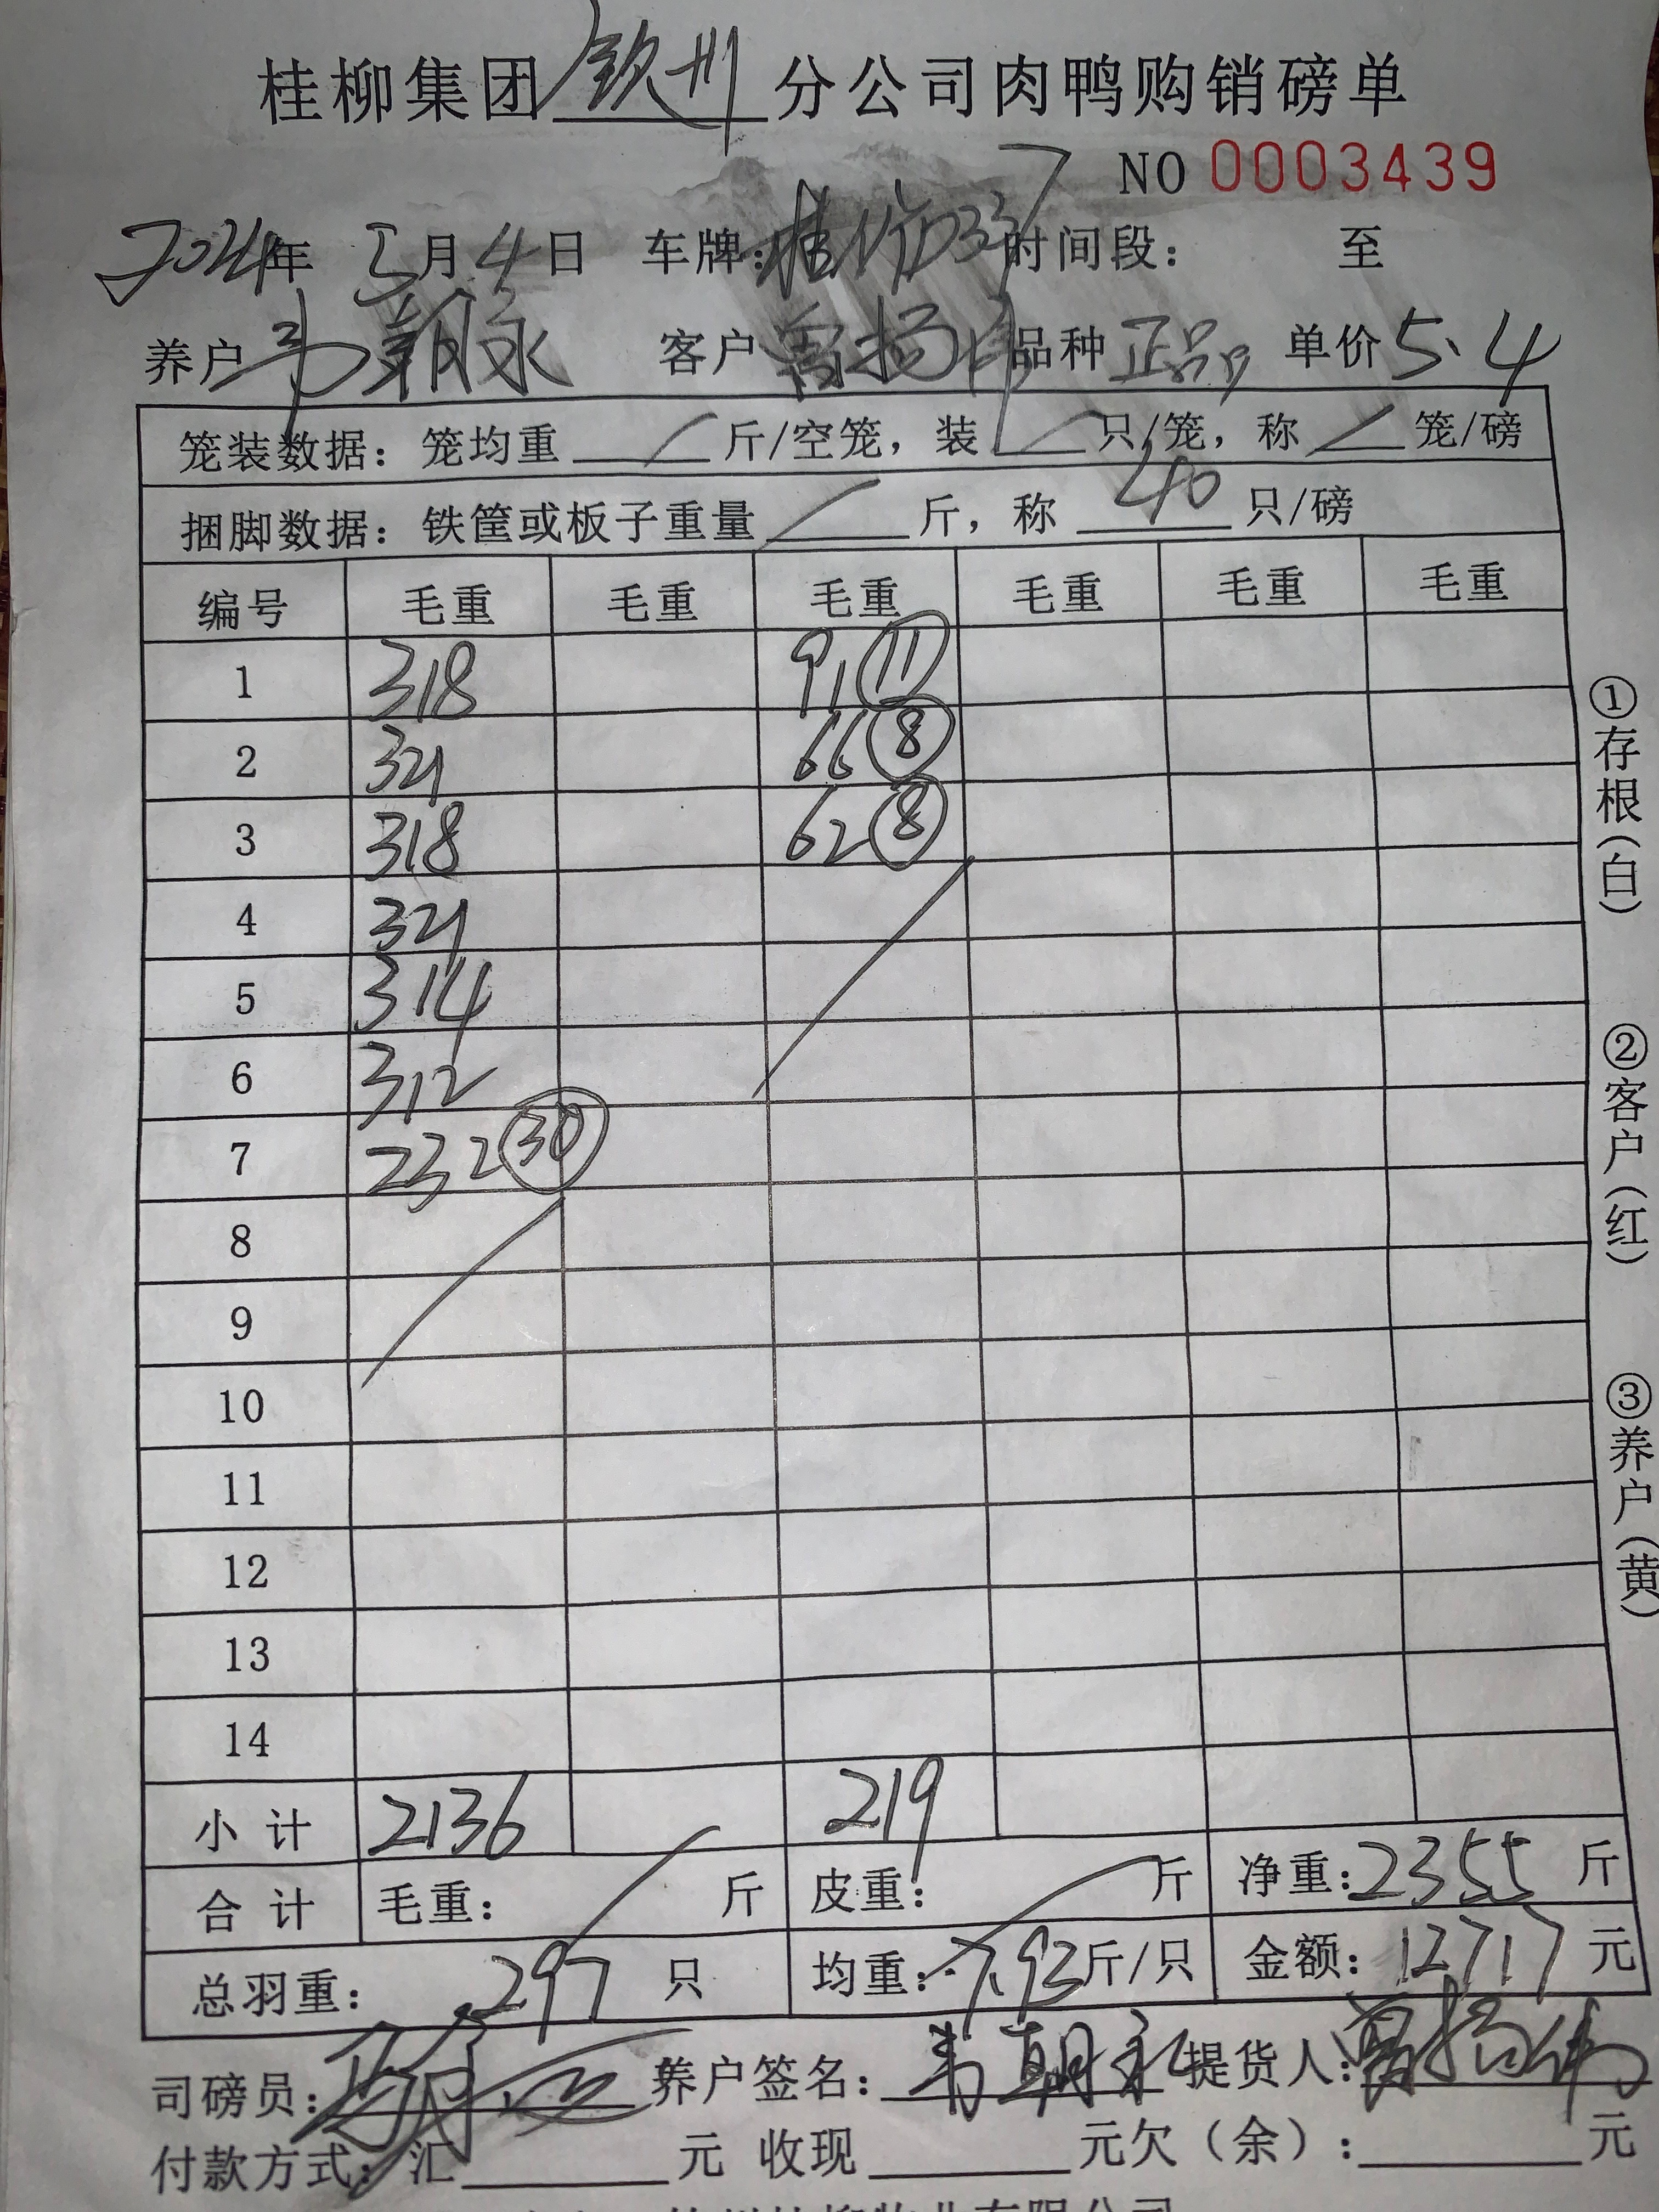 桂柳集团钦州分公司肉鸭购销磅单
NO 0003439
2024年 5月4日 车牌: 时间段: 至
养户 韦朝永 客户 曾扬伟 品种 正品 单价 5.4
笼装数据: 笼均重 / 斤/空笼, 装 / 只/笼, 称 / 笼/磅
捆脚数据: 铁筐或板子重量 / 斤, 称 40 只/磅
编号 毛重 毛重 毛重 毛重 毛重 毛重
1 318 91 ⑪
2 321 66 ⑧
3 318 62 ⑧
4 321
5 314
6 312
7 232 ㉚
8
9
10
11
12
13
14
小计 2136 219
合计 毛重: 斤 皮重: 斤 净重: 2355 斤
总羽重: 297 只 均重: 7.93 斤/只 金额: 12717 元
司磅员: 养户签名: 韦朝永 提货人: 曾扬伟
付款方式: 汇 元 收现 元欠(余): 元
①存根(白)
②客户(红)
③养户(黄)